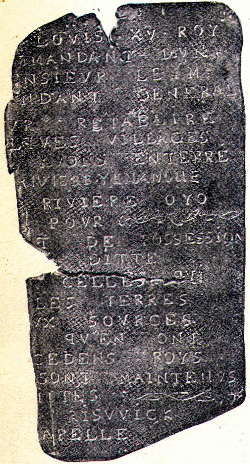 LOUIS XV ROY
MANDANT
NSIEUR LE M
NDANT GENERAL
RETABLIRE
VES VILLAGES
VONS ENTERRE
RIVIERE YENANGUE
RIVIERE OYO
POUR
T DE POSSESSION
DITTE
CELLES QUI
LES TERRES
UX SOURCES
QVEN ONT
CEDENS ROYS
SONT MAINTENVS
ITTES
RISVVICK
APELLE